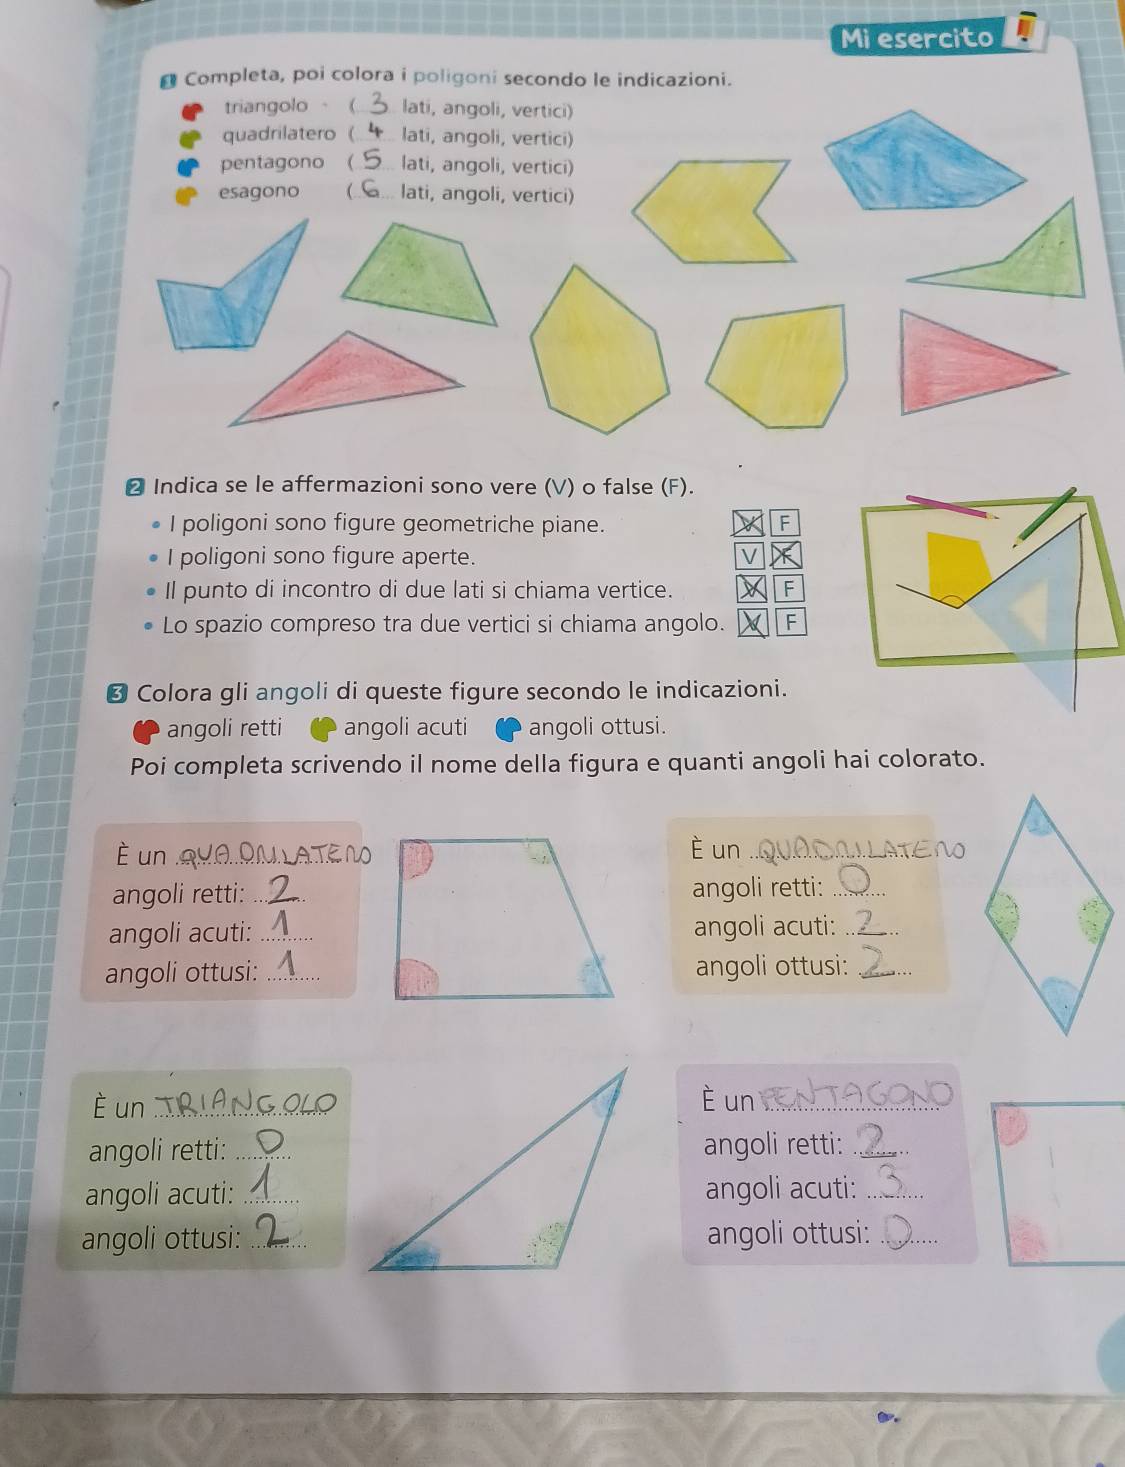 Mi esercito
1 Completa, poi colora i poligoni secondo le indicazioni.
triangolo (3 lati, angoli, vertici)
quadrilatero (4 lati, angoli, vertici)
pentagono (5 lati, angoli, vertici)
esagono (6 lati, angoli, vertici)
2 Indica se le affermazioni sono vere (V) o false (F).
• I poligoni sono figure geometriche piane. V F
• I poligoni sono figure aperte. V F
• Il punto di incontro di due lati si chiama vertice. V F
• Lo spazio compreso tra due vertici si chiama angolo. V F
3 Colora gli angoli di queste figure secondo le indicazioni.
angoli retti angoli acuti angoli ottusi.
Poi completa scrivendo il nome della figura e quanti angoli hai colorato.
È un QUADRILATERO
angoli retti: 2
angoli acuti: 1
angoli ottusi: 1
È un QUADRILATERO
angoli retti: 0
angoli acuti: 2
angoli ottusi: 2
È un TRIANGOLO
angoli retti: 0
angoli acuti: 1
angoli ottusi: 2
È un PENTAGONO
angoli retti: 2
angoli acuti: 3
angoli ottusi: 0